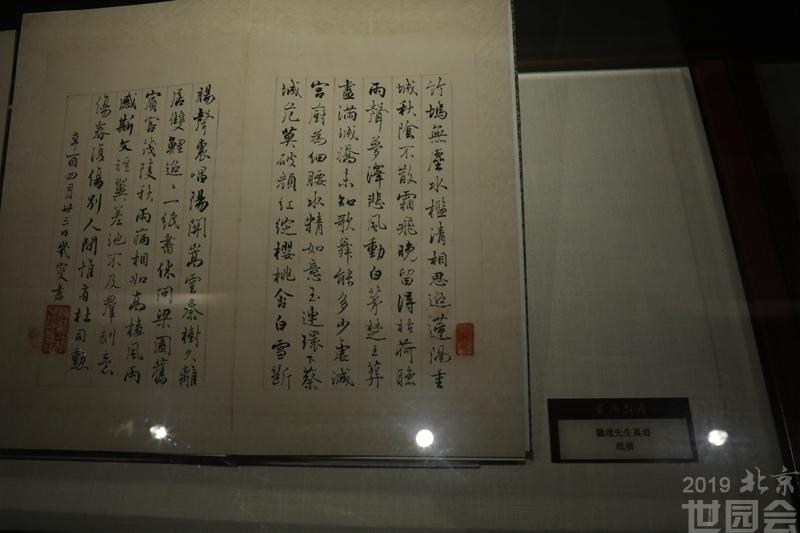 竹塢無塵水檻清相思迢遞隔重
城秋陰不散霜飛晚留得枯荷聽
雨聲夢澤悲風動白茅楚王葬
盡滿城嬌未知歌舞能多少虛減
宮厨為細腰水精如意玉連環下蔡
城危莫破顏紅綻櫻桃含白雪斷
腸聲裏唱陽關嵩雲秦樹久離
居雙鯉迢〻一紙書休問梁園舊
賓客茂陵秋雨病相如高樓風雨
感斯文短翼差池不及羣刻意
傷春復傷別人間惟有杜司勳
辛酉四月廿三日幾叟書
幾道先生真迹
纸质
2019 北京
世园会